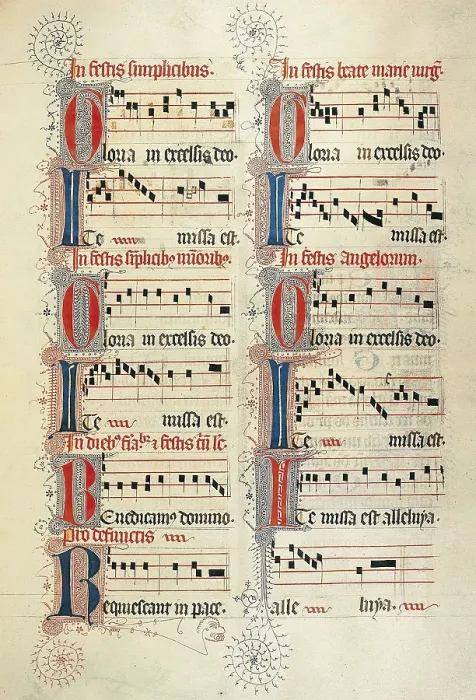 In festis simplicibus.
Gloria in excelsis deo.
Ite missa est.
In festis siplicibꝰ mioribꝰ
Gloria in excelsis deo.
Ite missa est.
In diebꝰ & festis
Benedicamꝰ domino.
Pro defunctis
Requiescant in pace.
In festis beate marie virg̃.
Gloria in excelsis deo.
Ite missa est.
In festis Angelorum.
Gloria in excelsis deo.
Ite missa est.
Ite missa est alleluya.
alle luya.